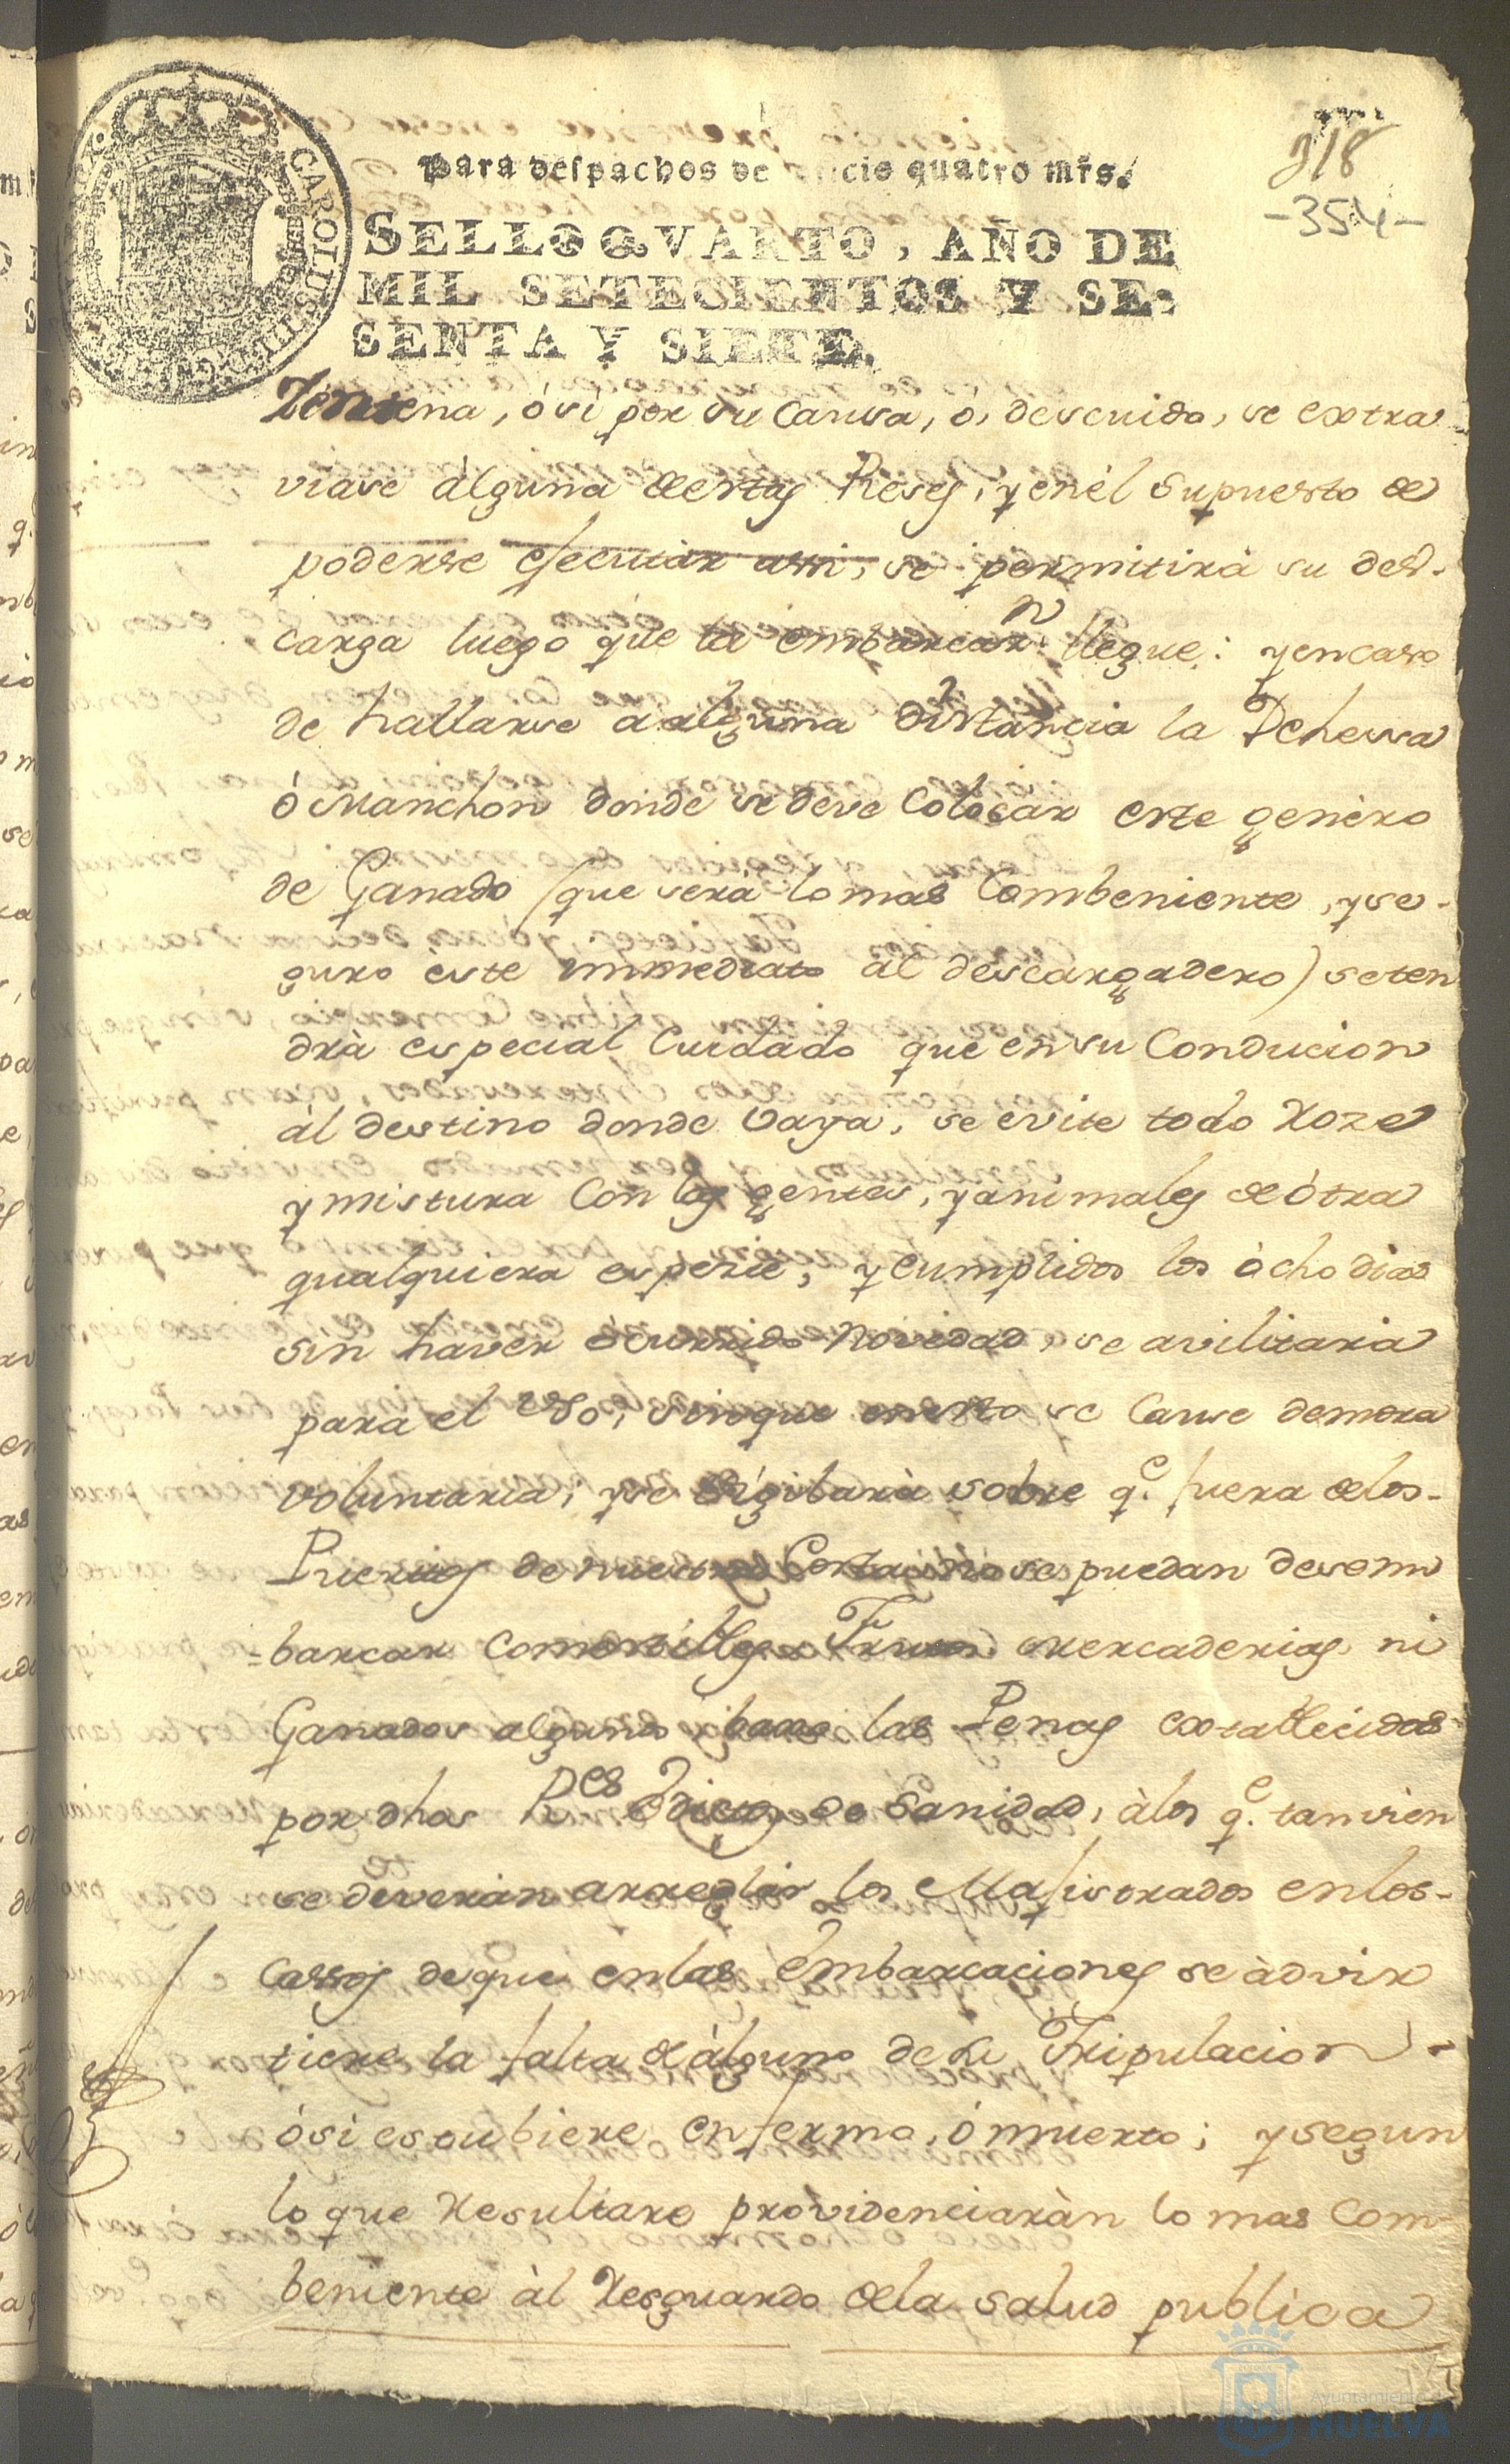 318
-354-
Para despachos de oficio quatro mrs.
SELLO QVARTO, AÑO DE
MIL SETECIENTOS Y SE-
SENTA Y SIETE.
CAROLUS III D G
ena, ó si por su Causa, ò, descuido, se extra
viase àlguna de estas Reses, y en èl supuesto de
poderse efecutar assi, se permitirà su des-
carga luego que la embarcaon llegue: y en caso
de hallarse a alguna distancia la Dehessa
ó Manchon donde se deve Colocar este genèro
de Ganado (que serà lo mas Combeniente, y se-
guro èste immediato al descargadero) se ten
drà especial Cuidado que en su Conducion
àl destino donde vaya, se evite todo Roze
y mistura Con las gentes, y animales de ótra
qualquiera espezie, y cumplidos los òcho dias
sin haver ocurrido Novedad, se avilitaria
para el uso, sin que en esto se Cause demora
voluntaria; y se vigilarà sobre q.e fuera de los-
Puertos de nuestra Costa no se puedan desem
=barcar comestibles Frutos mercaderias ni
Ganados alguno baxo las Penas extablecidas
por dhos Res Edictos de Sanidad, à los q.e tanvien
se deveràn arreglar los Malisorados en los-
Cassos de que en las Embarcaciones se àdvir
tiere la falta de àlguno de su Tripulacion -
ó si estubiere enfermo, ó muerto; y segun
lo que Resultare providenciaràn lo mas Com-
beniente àl Resguardo de la salud publica
Ayuntamiento de
HUELVA